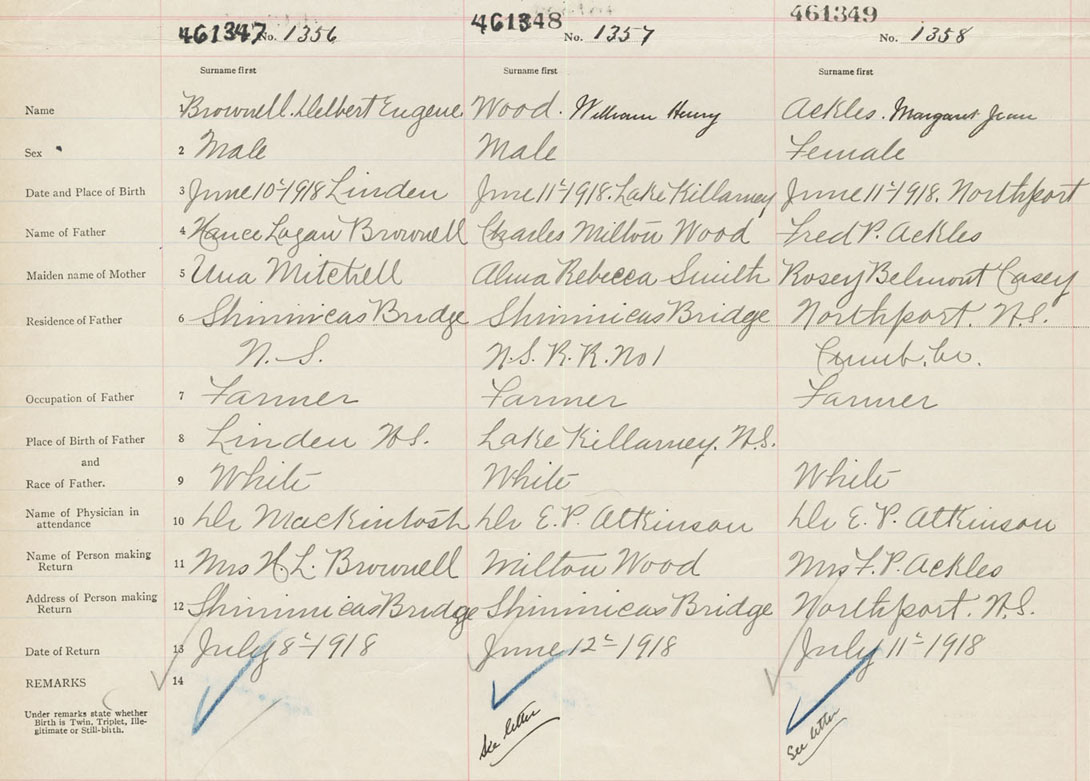 461347 No. 1356 461348 No. 1357 461349 No. 1358
Surname first Surname first Surname first
Name 1 Brownell. Delbert Eugene Wood. William Henry Ackles. Margaret Jean
Sex 2 Male Male Female
Date and Place of Birth 3 June 10th 1918 Linden June 11th 1918. Lake Killarney June 11th 1918. Northport
Name of Father 4 Hance Logan Brownell Charles Milton Wood Fred P. Ackles
Maiden name of Mother 5 Una Mitchell Alma Rebecca Smith Rosey Belmont Casey
Residence of Father 6 Shinimicas Bridge Shinimicas Bridge Northport. N.S.
N.S. N.S. R.R. No 1 Cumb. Co.
Occupation of Father 7 Farmer Farmer Farmer
Place of Birth of Father 8 Linden N.S. Lake Killarney. N.S.
and
Race of Father. 9 White White White
Name of Physician in attendance 10 Dr Mackintosh Dr E. P. Atkinson Dr E. P. Atkinson
Name of Person making Return 11 Mrs H. L. Brownell Milton Wood Mrs F. P. Ackles
Address of Person making Return 12 Shinimicas Bridge Shinimicas Bridge Northport. N.S.
Date of Return 13 July 8th 1918 June 12th 1918 July 11th 1918
REMARKS 14
Under remarks state whether
Birth is Twin, Triplet, Ille-
gitimate or Still-birth.
See letter See letter